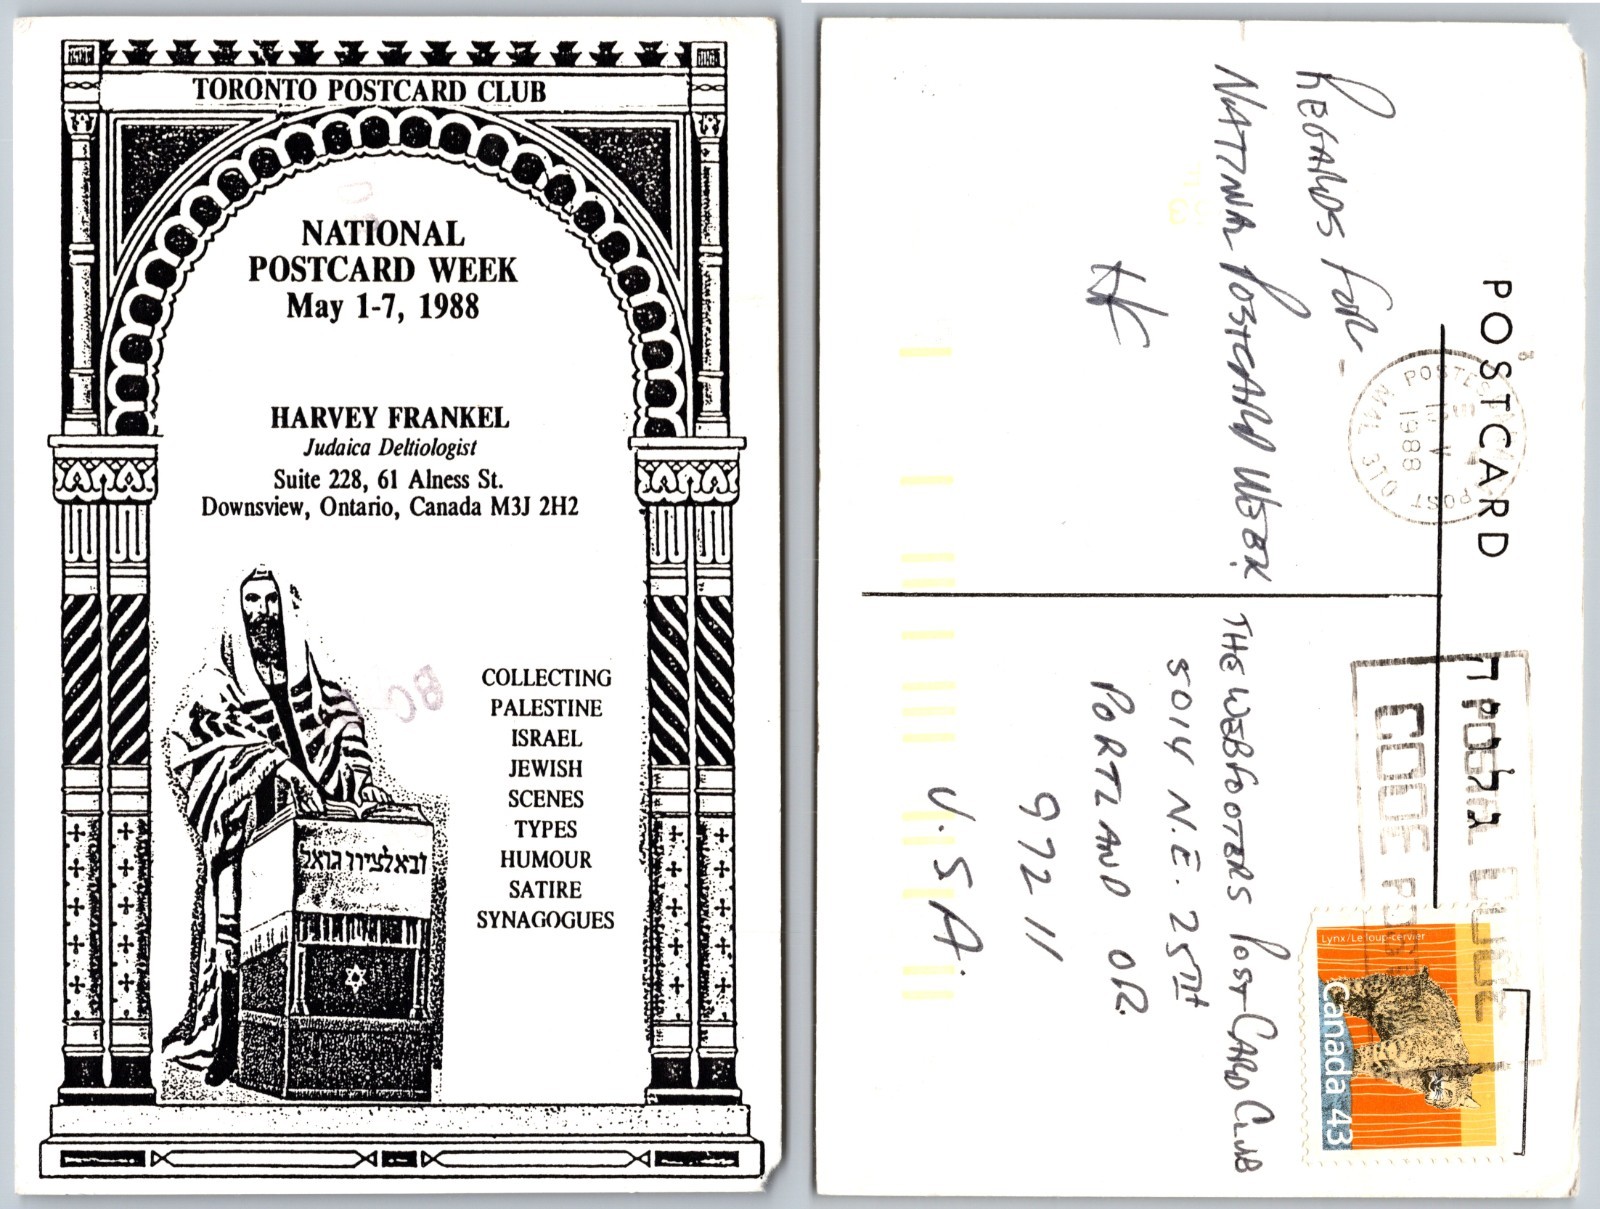 TORONTO POSTCARD CLUB
NATIONAL
POSTCARD WEEK
May 1-7, 1988
HARVEY FRANKEL
Judaica Deltiologist
Suite 228, 61 Alness St.
Downsview, Ontario, Canada M3J 2H2
COLLECTING
PALESTINE
ISRAEL
JEWISH
SCENES
TYPES
HUMOUR
SATIRE
SYNAGOGUES
ובאלציון גואל
POSTCARD
REGARDS FOR
NATIONAL POSTCARD WEEK.
HF
THE WEBFOOTERS POST CARD CLUB
5014 N.E. 25TH
PORTLAND OR.
97211
U.S.A.
MAIL POSTE
1988
POST
CODE
Lynx/Le loup-cervier
Canada 43